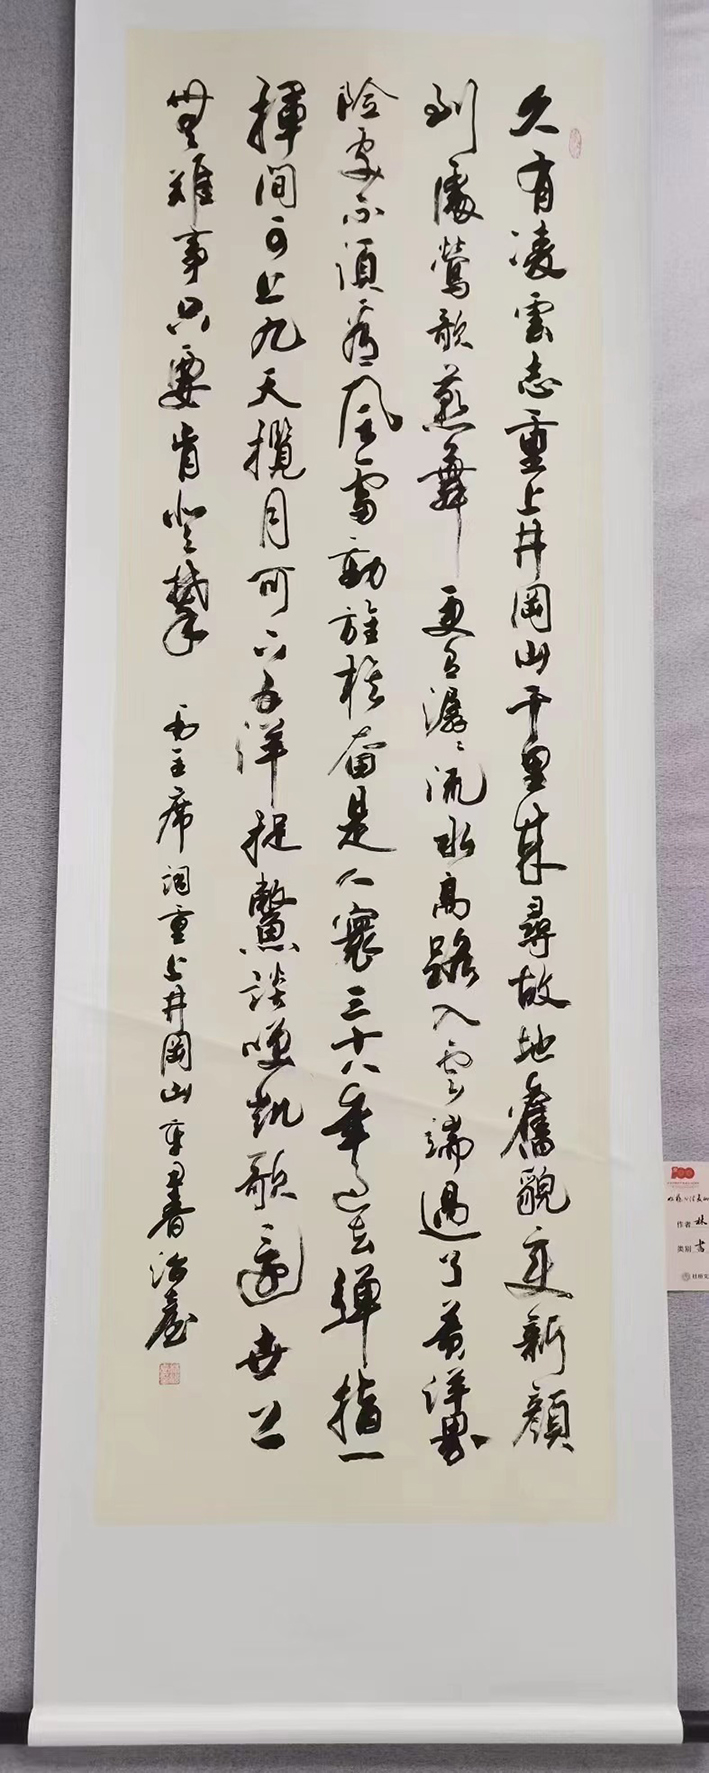 久有凌雲志重上井岡山千里來尋故地舊貌變新顏
到處鶯歌燕舞更有潺々流水高路入雲端過了黃洋界
險處不須看風雷動旌旗奮是人寰三十八年過去彈指一
揮間可上九天攬月可下五洋捉鱉談咲凱歌還世上
無難事只要肯登攀 毛主席詞重上井岡山 辛丑春
100
作者 林
类别 書